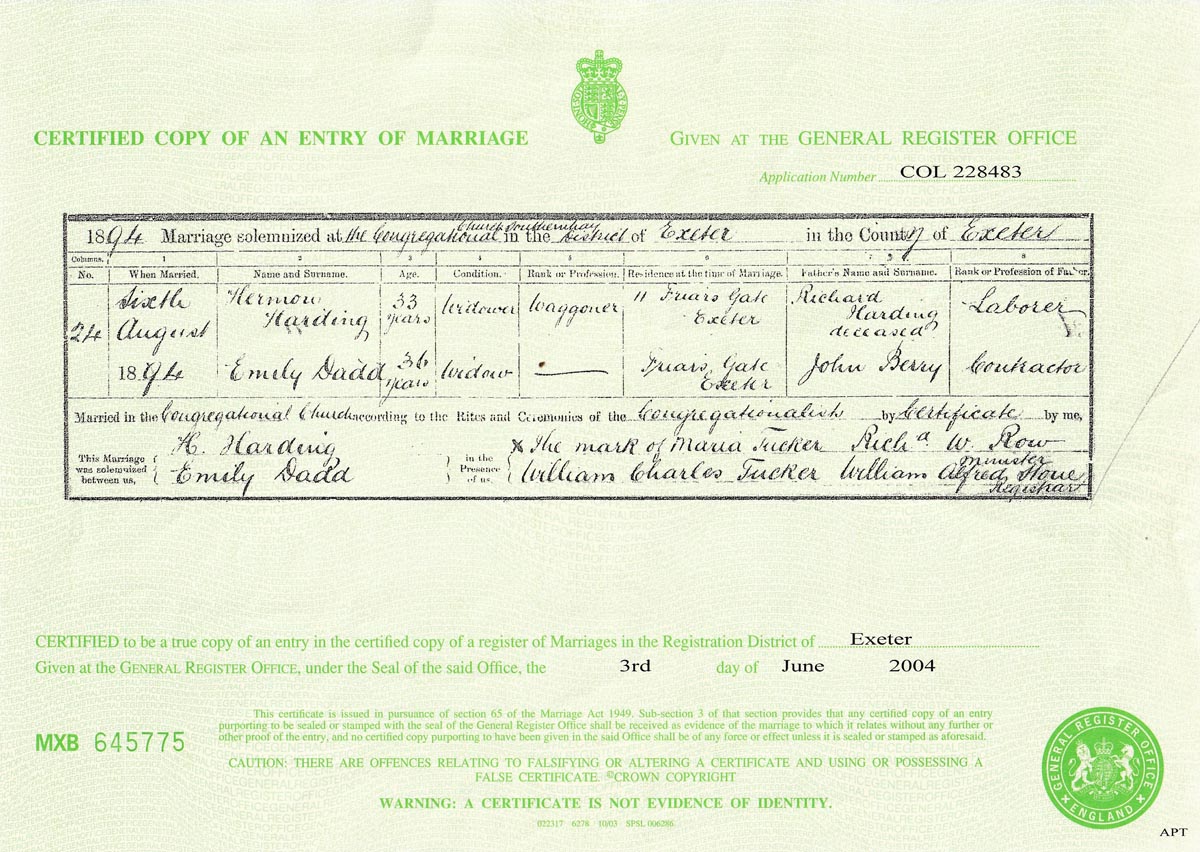 CERTIFIED COPY OF AN ENTRY OF MARRIAGE
GIVEN AT THE GENERAL REGISTER OFFICE
Application Number COL 228483
1894 Marriage solemnized at the Congregational Church Southernhay in the District of Exeter in the County of Exeter
Columns. 1 2 3 4 5 6 7 8
No. When Married. Name and Surname. Age. Condition. Rank or Profession. Residence at the time of Marriage. Father's Name and Surname. Rank or Profession of Father.
24 Sixth August 1894
Hermon Harding 33 years Widower Waggoner 11 Friars Gate Exeter Richard Harding deceased Laborer
Emily Dadd 36 years Widow Friars Gate Exeter John Berry Contractor
Married in the Congregational Church according to the Rites and Ceremonies of the Congregationalists by Certificate by me,
This Marriage was solemnized between us, H. Harding Emily Dadd
in the Presence of us, X The mark of Maria Tucker William Charles Tucker
Richd W. Row Minister
William Alfred Stone Registrar
CERTIFIED to be a true copy of an entry in the certified copy of a register of Marriages in the Registration District of Exeter
Given at the GENERAL REGISTER OFFICE, under the Seal of the said Office, the 3rd day of June 2004
MXB 645775
This certificate is issued in pursuance of section 65 of the Marriage Act 1949. Sub-section 3 of that section provides that any certified copy of an entry
purporting to be sealed or stamped with the seal of the General Register Office shall be received as evidence of the marriage to which it relates without any further or
other proof of the entry, and no certified copy purporting to have been given in the said Office shall be of any force or effect unless it is sealed or stamped as aforesaid.
CAUTION: THERE ARE OFFENCES RELATING TO FALSIFYING OR ALTERING A CERTIFICATE AND USING OR POSSESSING A
FALSE CERTIFICATE. ©CROWN COPYRIGHT
WARNING: A CERTIFICATE IS NOT EVIDENCE OF IDENTITY.
022317 6278 10/03 SPSL 006286
GENERAL REGISTER OFFICE
ENGLAND
APT